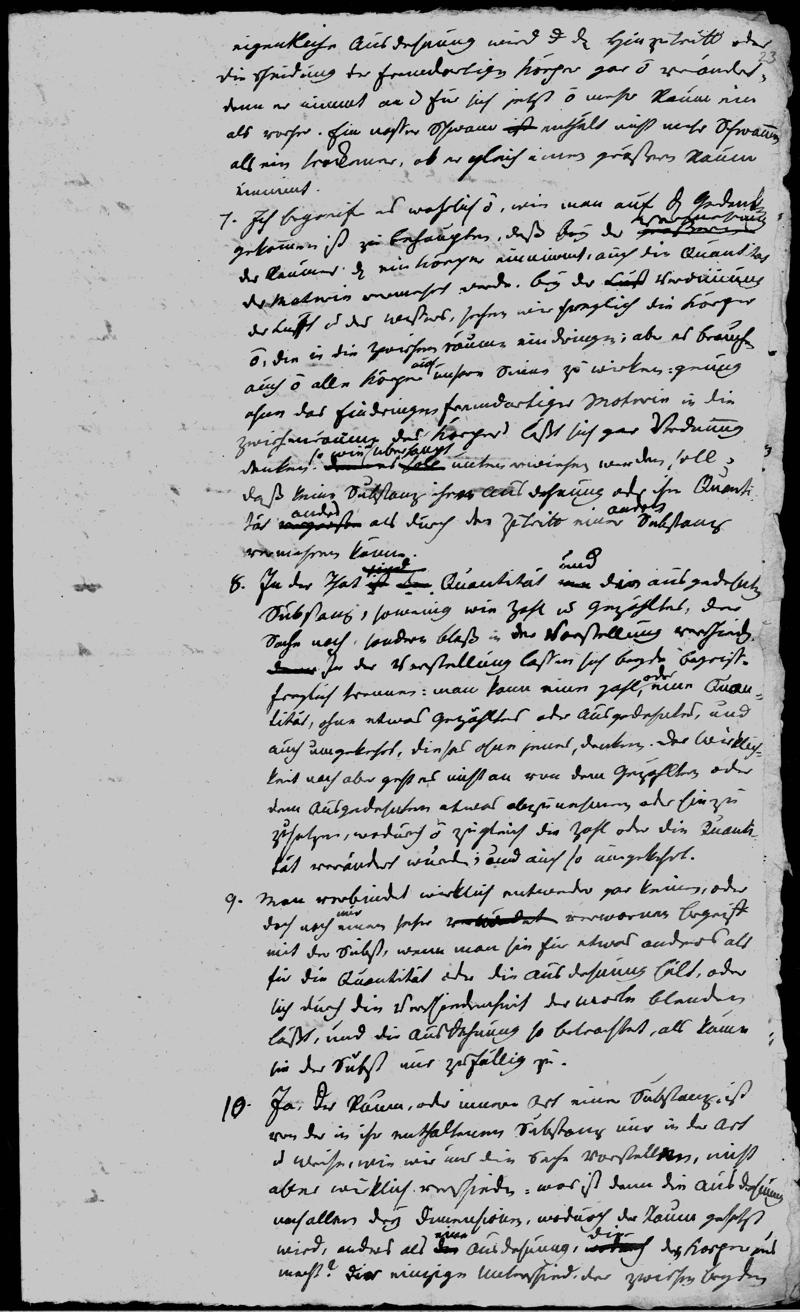 eigentliche Ausdehnung wird d dz Hinzutritt oder
23
die scheidung der fremdartigen Körper gar ō veränder-,
denn er nimmt an u für sich jetzt ō mehr Raum ein
als vorher. Ein nasser Schwam ist enthält nicht mehr Schwam̄
als ein trockener, ob er gleich einen grössern Raum
einnimt.
7. Ich begreife es wahrlich ō, wie man auf dz Gedank
gekom̄en ist zu behaupten, daß bey der Vermehrung
des Raumes dz ein Körper einnimmt, auch die Quantitas
der Materie vermehrt werde. bey der Luft Verdünnung
der Luft u des Wassers, sehen wir freylich die Körper
ō, die in die zwischen räume eindringen; aber es brauch
auch ō alle Körper auf unsere Sinne zu wirken: genug
ohne das Eindringen fremdartiger Materie in die
zwischenräume des Körpers läßt sich gar Verdünnung
denken. so wie überhaupt unten erwiesen werden soll,
daß keine Substanz ihre Ausdehnung oder ihre Quanti
tät anders als durch den zutritt einer andern Substanz
vermehren kann.
8. In der That sind Quantität und die ausgedehnte
Substanz, so wenig wie Zahl u Gezähltes, der
Sache nach, sondern bloß in der Vorstellung verschied.
In der Vorstellung lassen sich beyde begriffe
freylich trennen: man kann eine zahl, oder eine Quan-
tität, ohne etwas Gezähltes oder Ausgedehntes, und
auch umgekehrt, dieses ohne jenes, denken. Der Wirklich-
keit nach aber geht es nicht an von dem Gezählten oder
dem Ausgedehnten etwas abzunehmen oder hinzu
zusetzen, wodurch ō zugleich die Zahl oder die Quanti-
tät verändert würde; und auch so umgekehrt.
9. Man verbindet wirklich entweder gar keinen, oder
doch noch nur einen sehr verworrnen begrif
mit der Subst., wenn man sie für etwas anders als
für die Quantität oder die Ausdehnung hält, oder
sich durch die Verschiedenheit der Worte blenden
läßt, und die Ausdehnung so betrachtet, als käme
sie der Subst nur zufällig zu.
10. Ja, der Raum, oder innere Ort einer Substanz, ist
von der in ihr enthaltenen Substanz nur in der Art
u Weise, wie wir uns die Sache vorstellen, nicht
aber wirklich verschieden: was ist denn die Ausdehnung
nach allen drey Dimensionen, wodurch der Raum gesetzt
wird, anders als eine Ausdehnung, die den Körper aus
macht? Der einzige Unterschied, der zwischen beyden